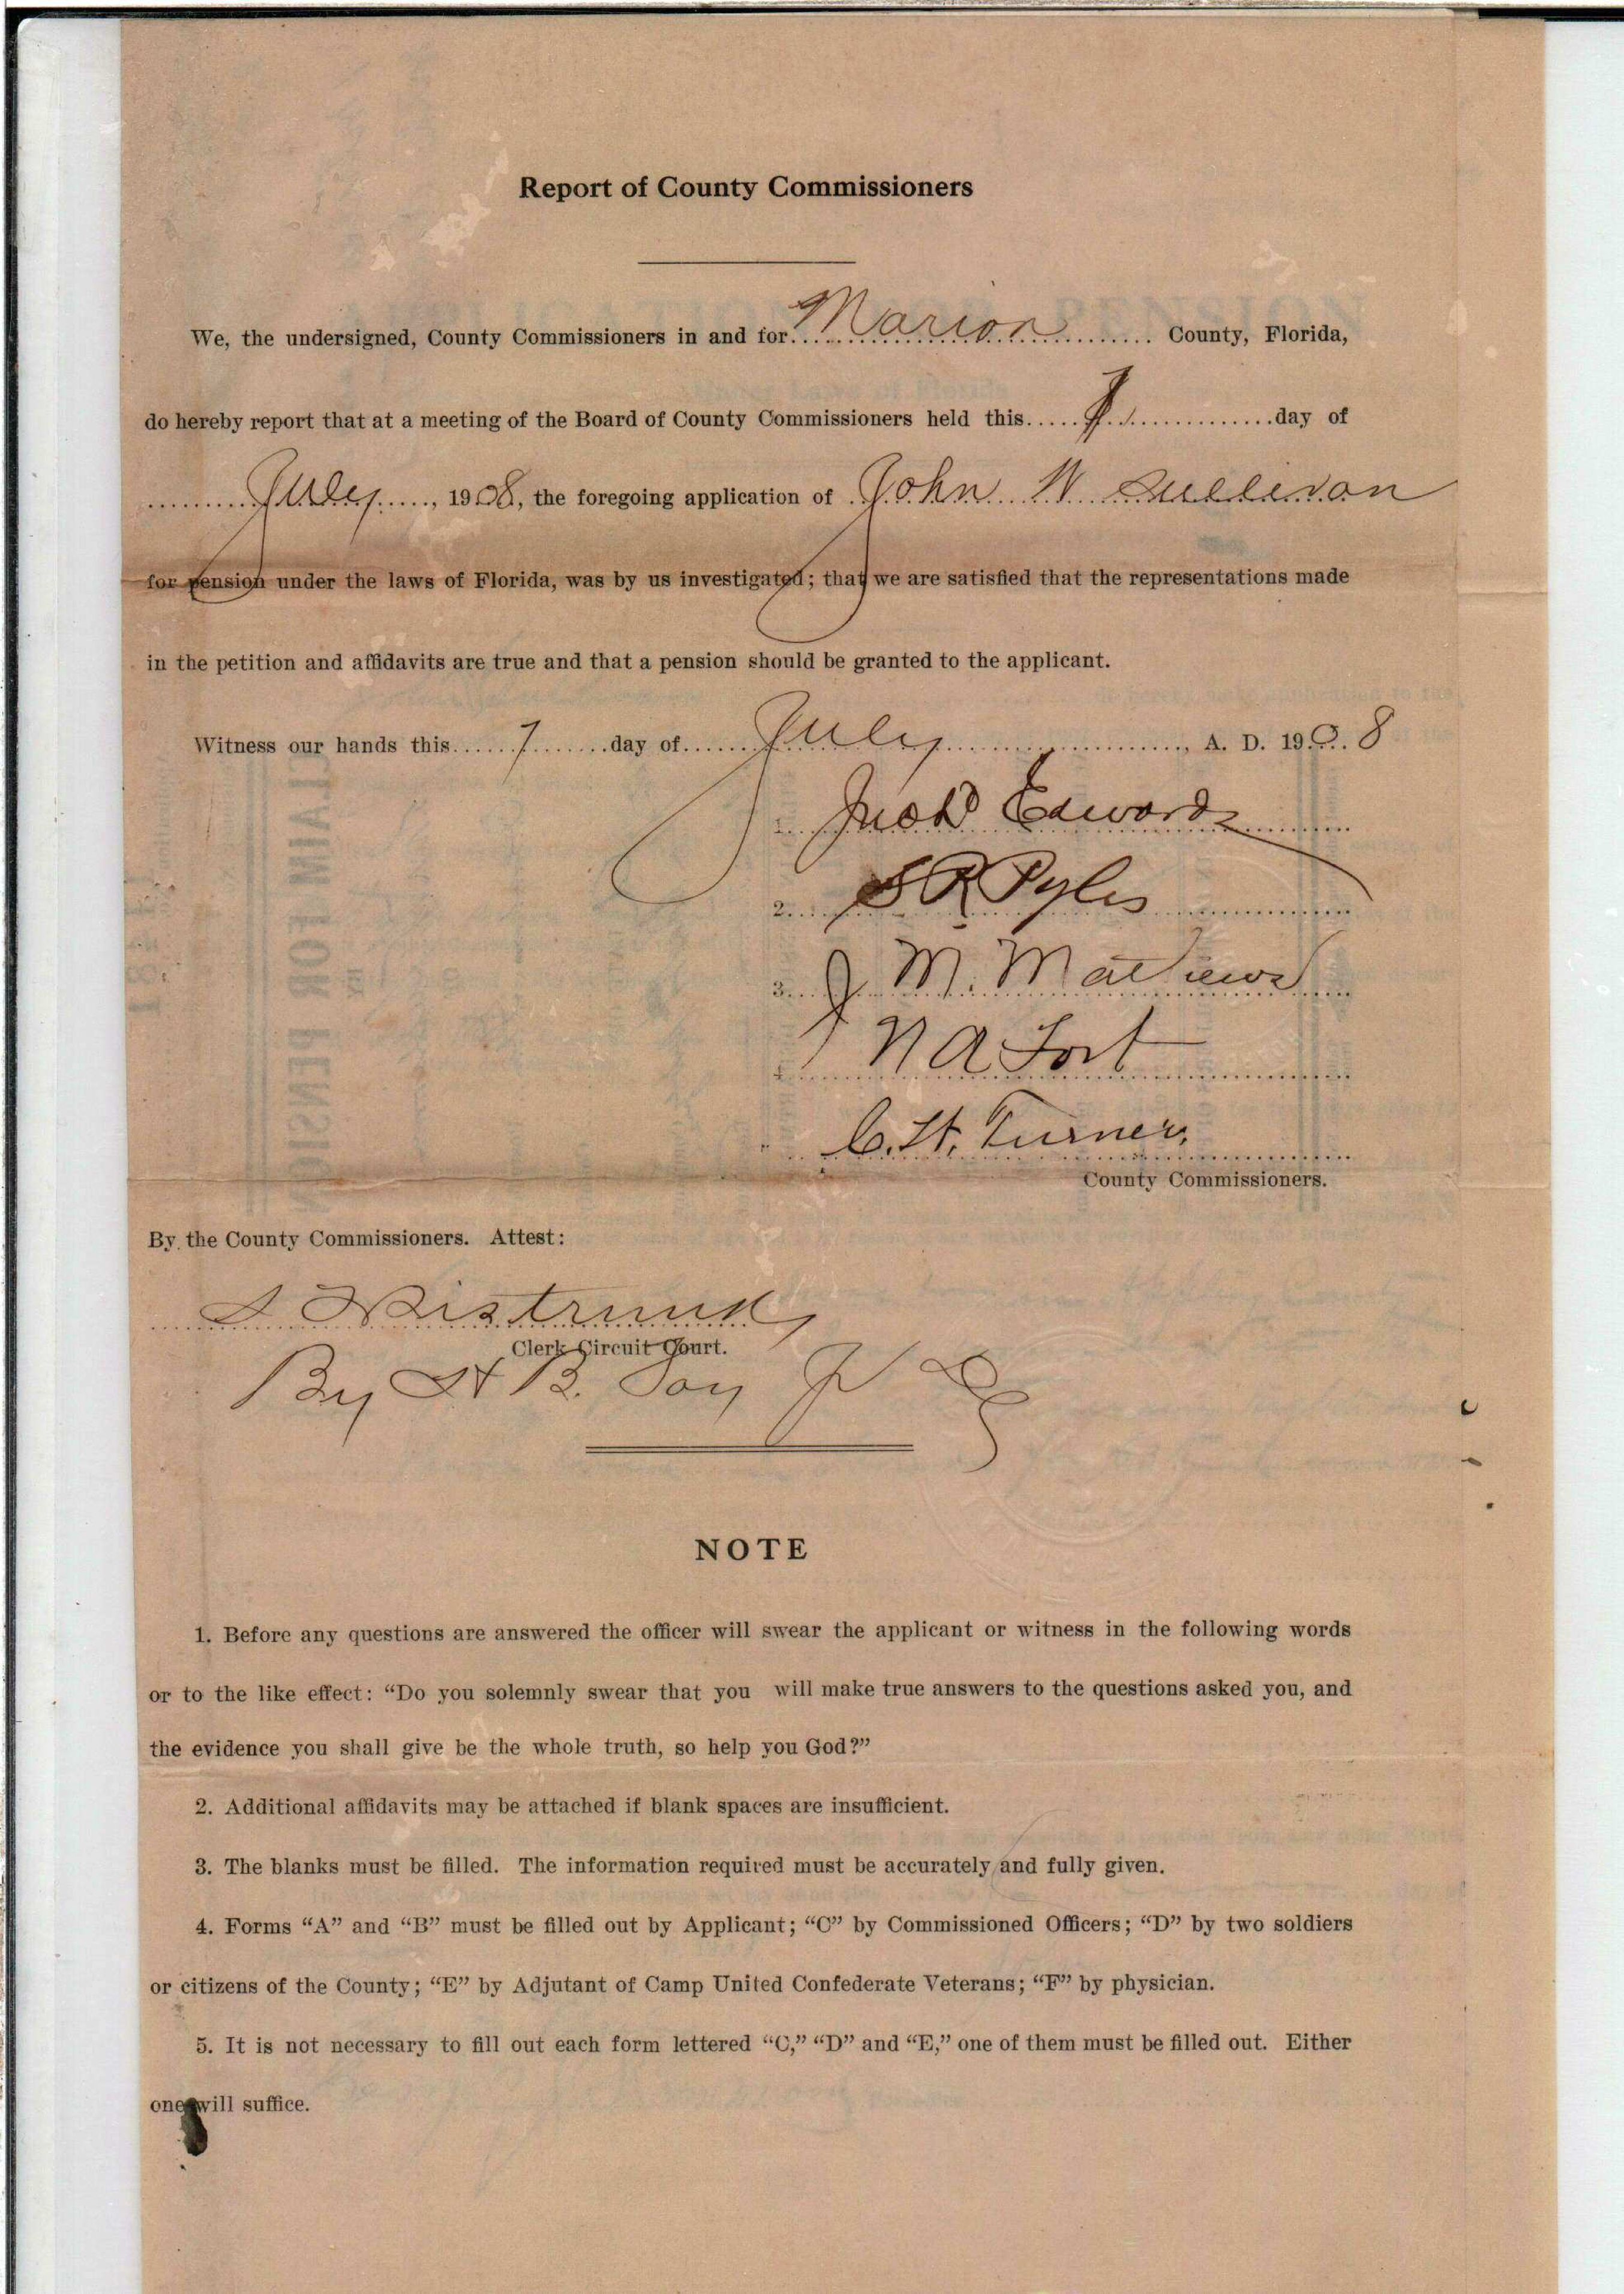 Report of County Commissioners
We, the undersigned, County Commissioners in and for Marion County, Florida,
do hereby report that at a meeting of the Board of County Commissioners held this 7 day of
July, 1908, the foregoing application of John W Sullivan
for pension under the laws of Florida, was by us investigated; that we are satisfied that the representations made
in the petition and affidavits are true and that a pension should be granted to the applicant.
Witness our hands this 7 day of July, A. D. 1908
Edwards
2. S R Pyles
3. J. M. Mathews
4. N A Fort
C. H. Turner.
County Commissioners.
By the County Commissioners. Attest:
S Sistrunk
Clerk Circuit Court.
By H B.
NOTE
1. Before any questions are answered the officer will swear the applicant or witness in the following words
or to the like effect: “Do you solemnly swear that you will make true answers to the questions asked you, and
the evidence you shall give be the whole truth, so help you God?”
2. Additional affidavits may be attached if blank spaces are insufficient.
3. The blanks must be filled. The information required must be accurately and fully given.
4. Forms “A” and “B” must be filled out by Applicant; “C” by Commissioned Officers; “D” by two soldiers
or citizens of the County; “E” by Adjutant of Camp United Confederate Veterans; “F” by physician.
5. It is not necessary to fill out each form lettered “C,” “D” and “E,” one of them must be filled out. Either
one will suffice.